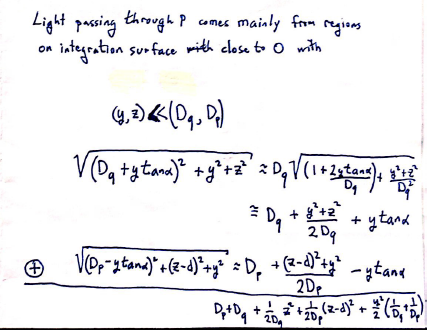 Light passing through P comes mainly from regions
on integration surface with close to O with
(y,z) ≪ (D_q, D_p)
√((D_q + y tanα)² + y² + z²) ≈ D_q √((1 + 2y tanα / D_q) + (y² + z²) / D_q²)
≅ D_q + (y² + z²) / 2D_q + y tanα
⊕ √((D_p - y tanα)² + (z-d)² + y²) ≈ D_p + ((z-d)² + y²) / 2D_p - y tanα
D_p + D_q + 1/2D_q z² + 1/2D_p (z-d)² + y²/2 (1/D_q + 1/D_p)